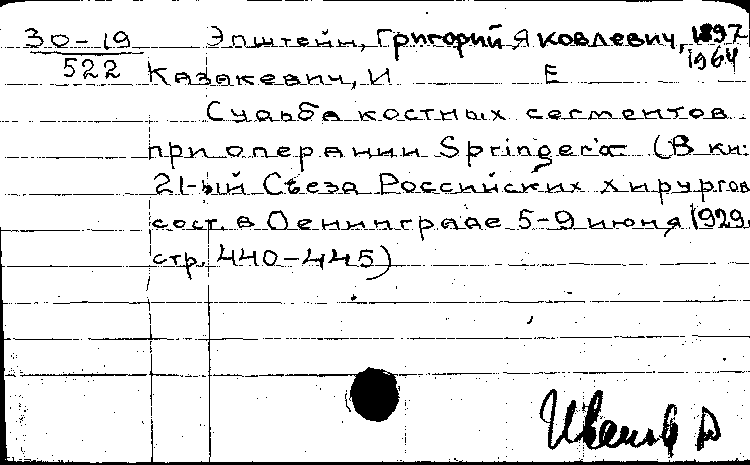 30-19 Эпштейн, Григорий Яковлевич, 1897
522 1964
Казакевич, И Е
Судьба костных сегментов
при оперании Springer'a (В кн:
21-ый Съезд Российских хирургов
сост. в Ленинграде 5-9 июня 1929.
стр. 440-445)
Иванов Д